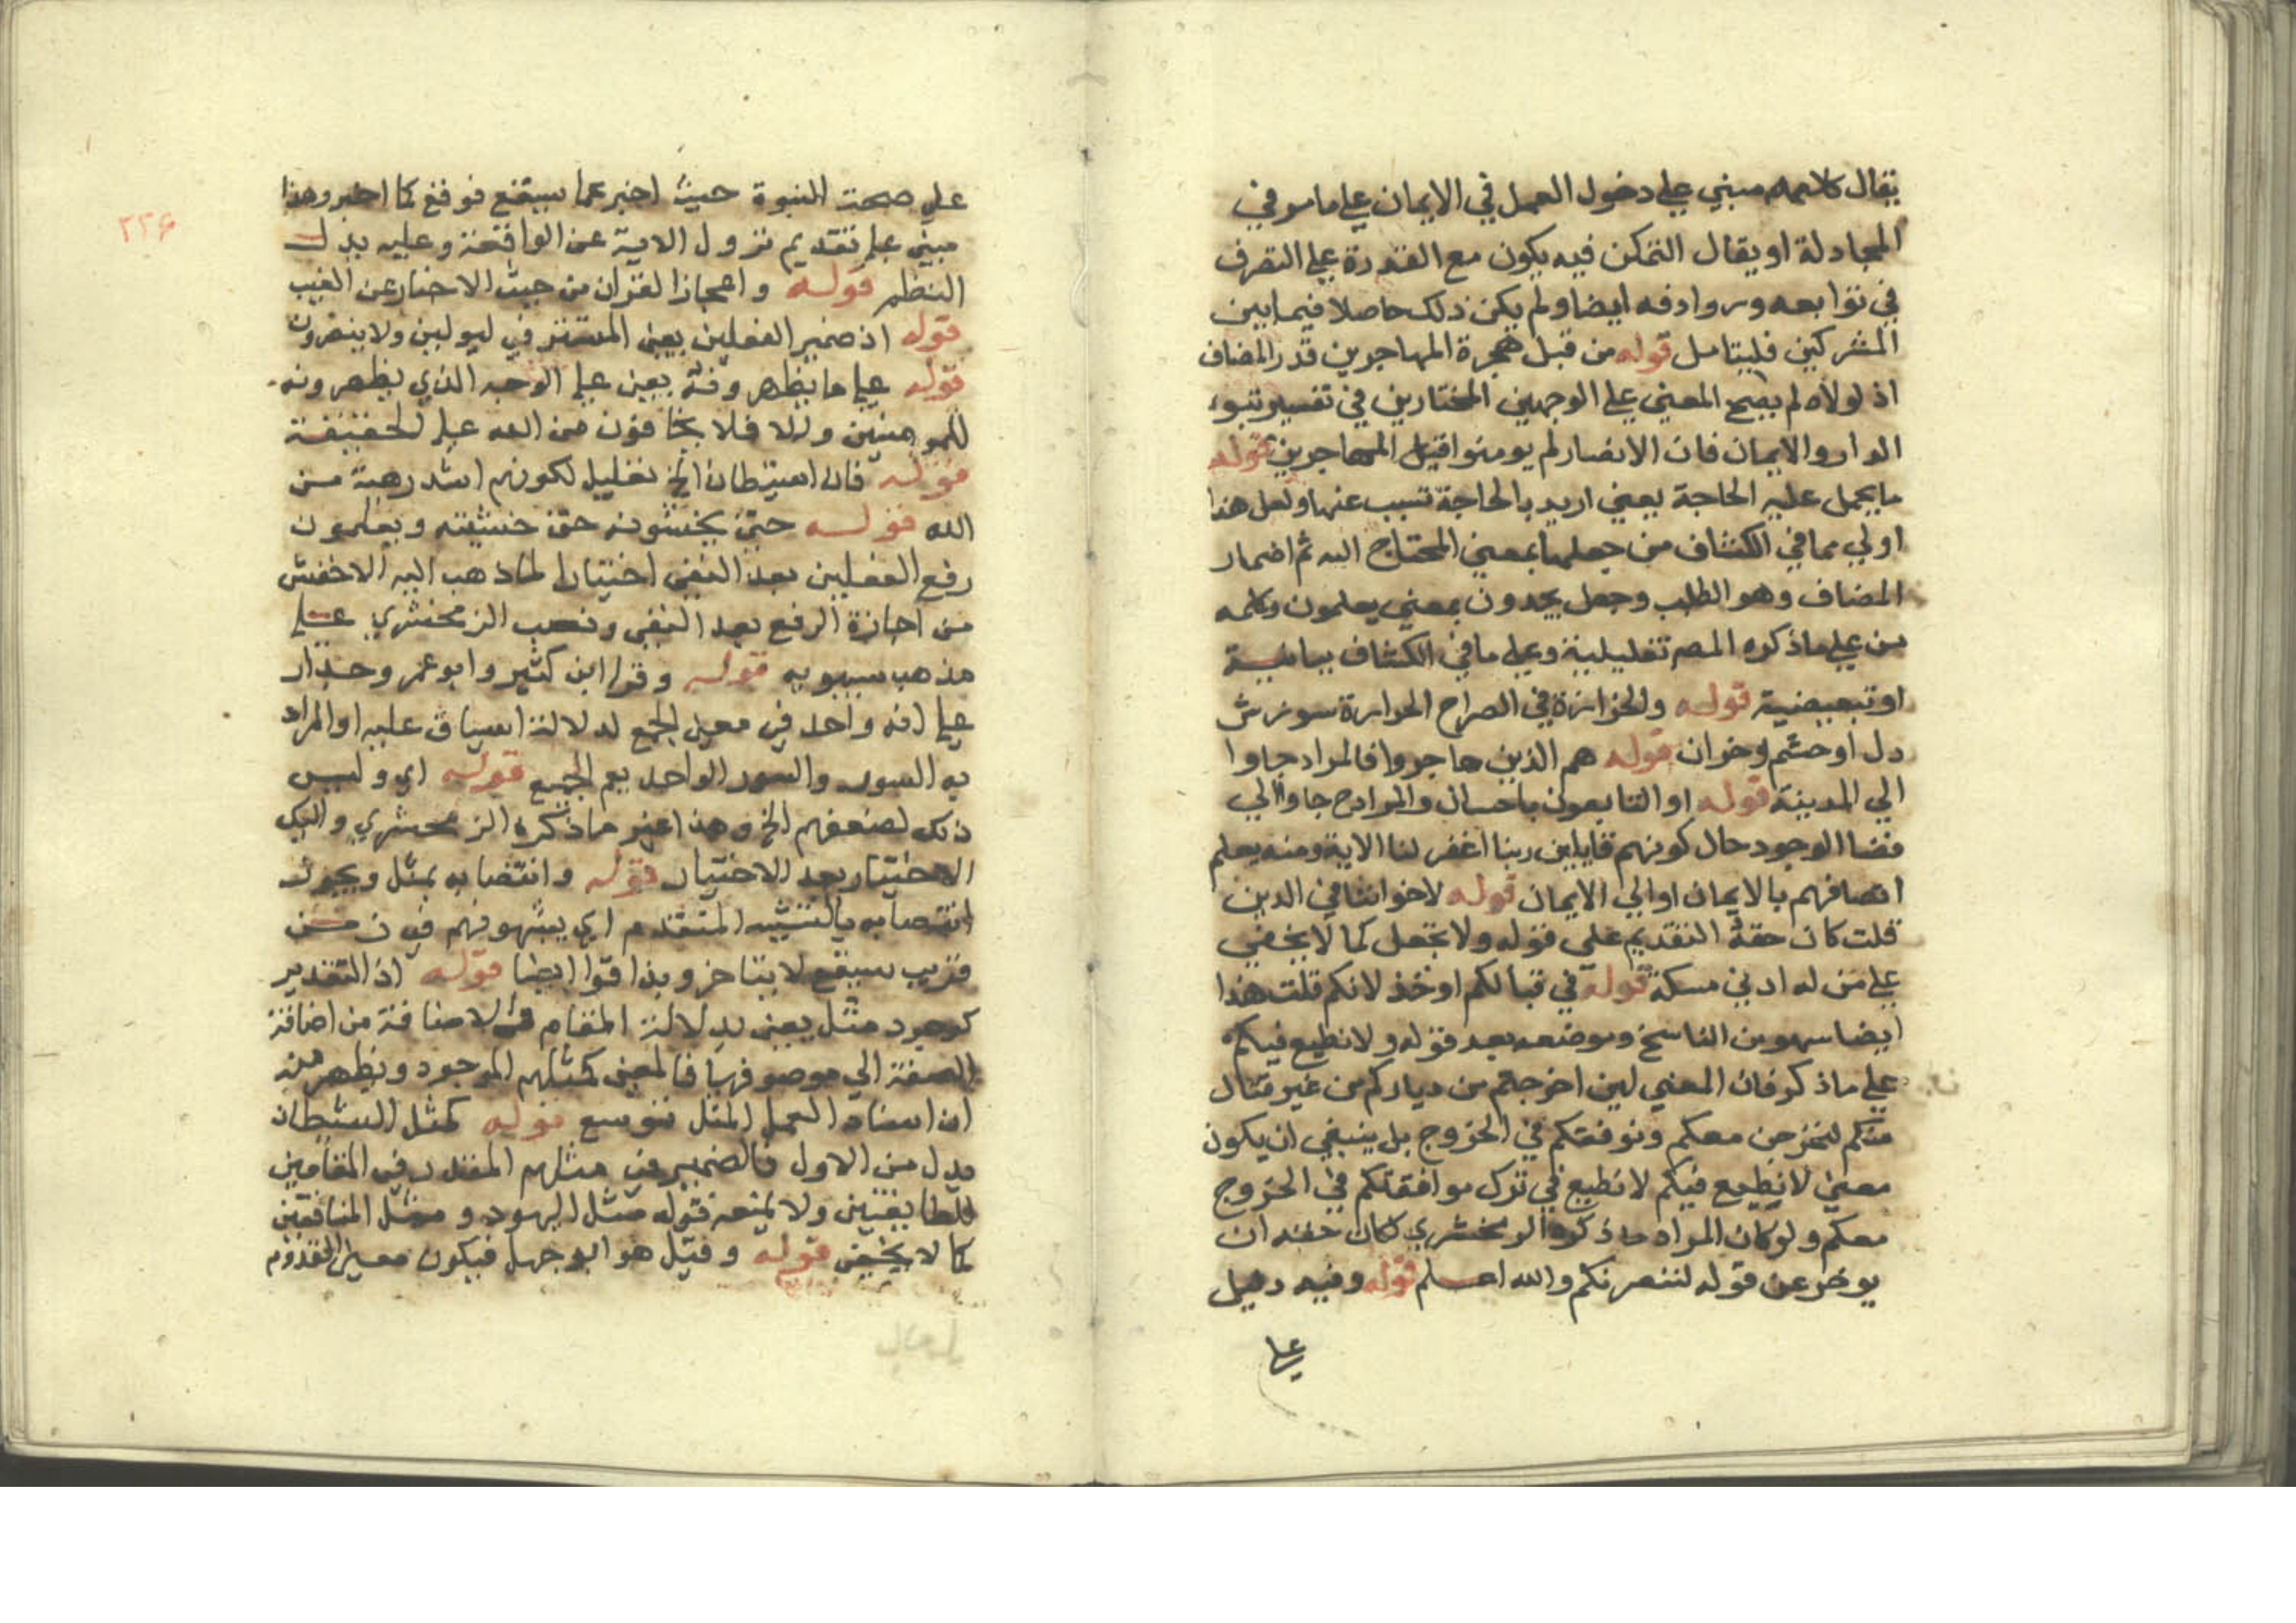 يقال كلامه مبني علي دخول العمل في الايمان علي ما مر في
المجادلة او يقال التمكن فيه يكون مع القدرة علي التصرف
في توابعه وروادفه ايضا ولم يكن ذلك حاصلا فيما بين
المشركين فليتامل قوله من قبل هجرة المهاجرين قدر المضاف
اذ لولاه لم يصح المعني علي الوجهين المختارين في تفسير تبوء
الدار والايمان فان الانصار لم يومنوا قبل المهاجرين قوله
ما يحمل عليه الحاجة يعني اريد بالحاجة تسبب عنها ولعل هذا
اولي مما في الكشاف من جعلها بمعني المحتاج اليه ثم اضمار
المضاف وهو الطلب وجعل يجدون بمعني يعلمون وكلمه
من علي ما ذكره المصم تعليلية وعلي ما في الكشاف بيانية
او تبعيضية قوله والحزازة في الصراح الحزازة سوزش
دل او خشم وخوان قوله هم الذين هاجروا فالمراد جاوا
الي المدينة قوله او التابعون باحسان والمراد ح جاوا الي
فضا الوجود حال كونهم قايلين ربنا اغفر لنا الاية ومنه يعلم
اتصافهم بالايمان او الي الايمان قوله لاخواننا في الدين
قلت كان حقه التقديم علي قوله ولا تجعل كما لا يخفي
علي من له ادني مسكة قوله في قتالكم او خذلانكم قلت هذا
ايضا سهو من الناسخ وموضعه بعد قوله ولا نطيع فيكم
علي ما ذكر فان المعني لين اخرجتم من دياركم من غير قتال
منكم لنخرجن معكم ونوفقكم في الخروج بل ينبغي ان يكون
معني لا نطيع فيكم لا نطيع في ترك موافقتكم في الخروج
معكم ولو كان المراد ما ذكره الزمخشري لكان حقه ان
يوخر عن قوله لننصرنكم والله اعلم قوله وفيه دليل
علي
٢٢٦
علي صحة النبوة حيث اخبر عما سيقع فوقع كما اخبر وهذا
مبني علي تقديم نزول الاية عن الواقعة وعليه يدل
النظم قوله واعجاز القران من حيث الاخبار عن الغيب
قوله اذ ضمير الفعلين يعني المستتر في ليولين ولا ينصرون
قوله علي ما يظهرونه يعني علي الوجه الذي يظهرونه
للمومنين والا فلا يخافون من الله علي الحقيقة
قوله فان استبطان الخ تعليل لكونهم اشد رهبة من
الله قوله حتي يخشونه حق خشيته ويعلمون
رفع الفعلين بعد النفي اختيارا لما ذهب اليه الاخفش
من اجازة الرفع بعد النفي ونصب الزمخشري علي
مذهب سيبويه قوله وقرا ابن كثير وابو عمرو جدار
علي انه واحد في معني الجمع لدلالة السياق عليه او المراد
به السور والسور الواحد يعم الجميع قوله اي وليس
ذلك لضعفهم الخ وهذا اعني ما ذكره الزمخشري واليك
الاختيار بعد الاختبار قوله وانتصابه بمثل ويجوز
انتصابه بالتشبيه المتقدم اي يشبهونهم في زمن
قريب سيقع لا يتاخر وبذاقوا ايضا قوله اذ التقدير
كوجود مثل يعني بدلالة المقام فالاضافة من اضافة
الصفة الي موصوفها فالمعني كمثلهم الموجود ويظهر منه
ان اسناد العمل المثل توسع قوله كمثل الشيطان
بدل من الاول فالضمير في مثلهم المقدر في المقامين
للطايفتين ولا يمنعه قوله مثل اليهود ومثل المنافقين
كما لا يخفي قوله وقيل هو ابو جهل فيكون معني